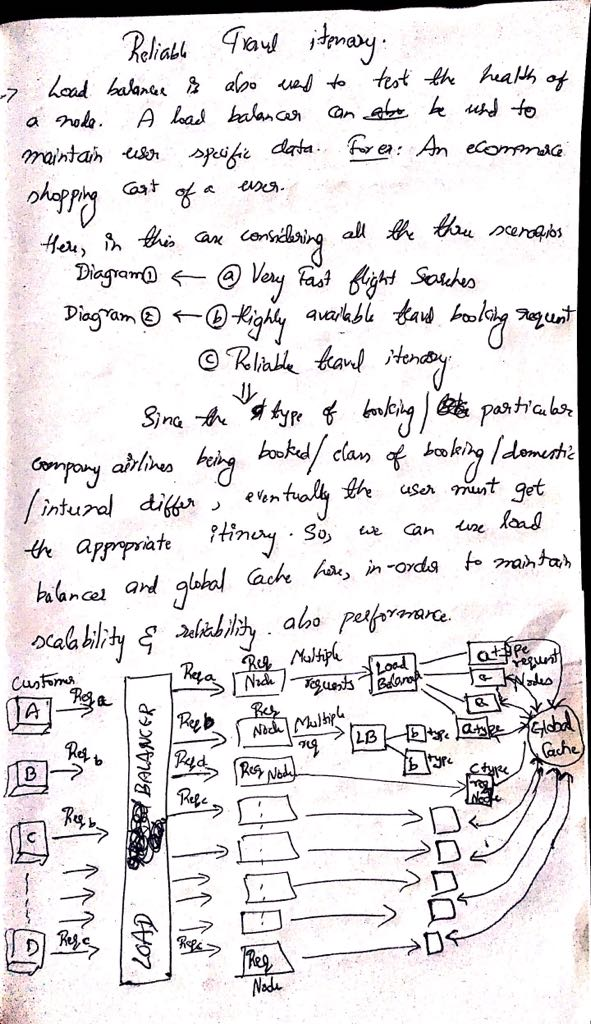 Reliable Travel itenary.
→ Load balancer is also used to test the health of
a node. A load balancer can be used to
maintain user specific data. For ex: An ecommerce
shopping cart of a user.
Here, in this case considering all the three scenarios
Diagram ① ← ⓐ Very Fast flight Searches
Diagram ② ← ⓑ Highly available travel booking request
ⓒ Reliable travel itenary.
⇓
Since the type of booking / particular
company airlines being booked / class of booking / domestic
/ internal differ, eventually the user must get
the appropriate itinery. So, we can use load
balancer and global Cache here, in-order to maintain
scalability & reliability. also performance.
Customer
A
Req a
B
Req b
C
Req b
D
Req c
LOAD BALANCER
Req a
Req b
Req d
Req c
Req c
Req Node
Multiple requests
Load Balancer
a type request Nodes
a
a
a type
Req Node
Multiple req
LB
b type
b type
Req Node
C type req Node
Req Node
Global Cache